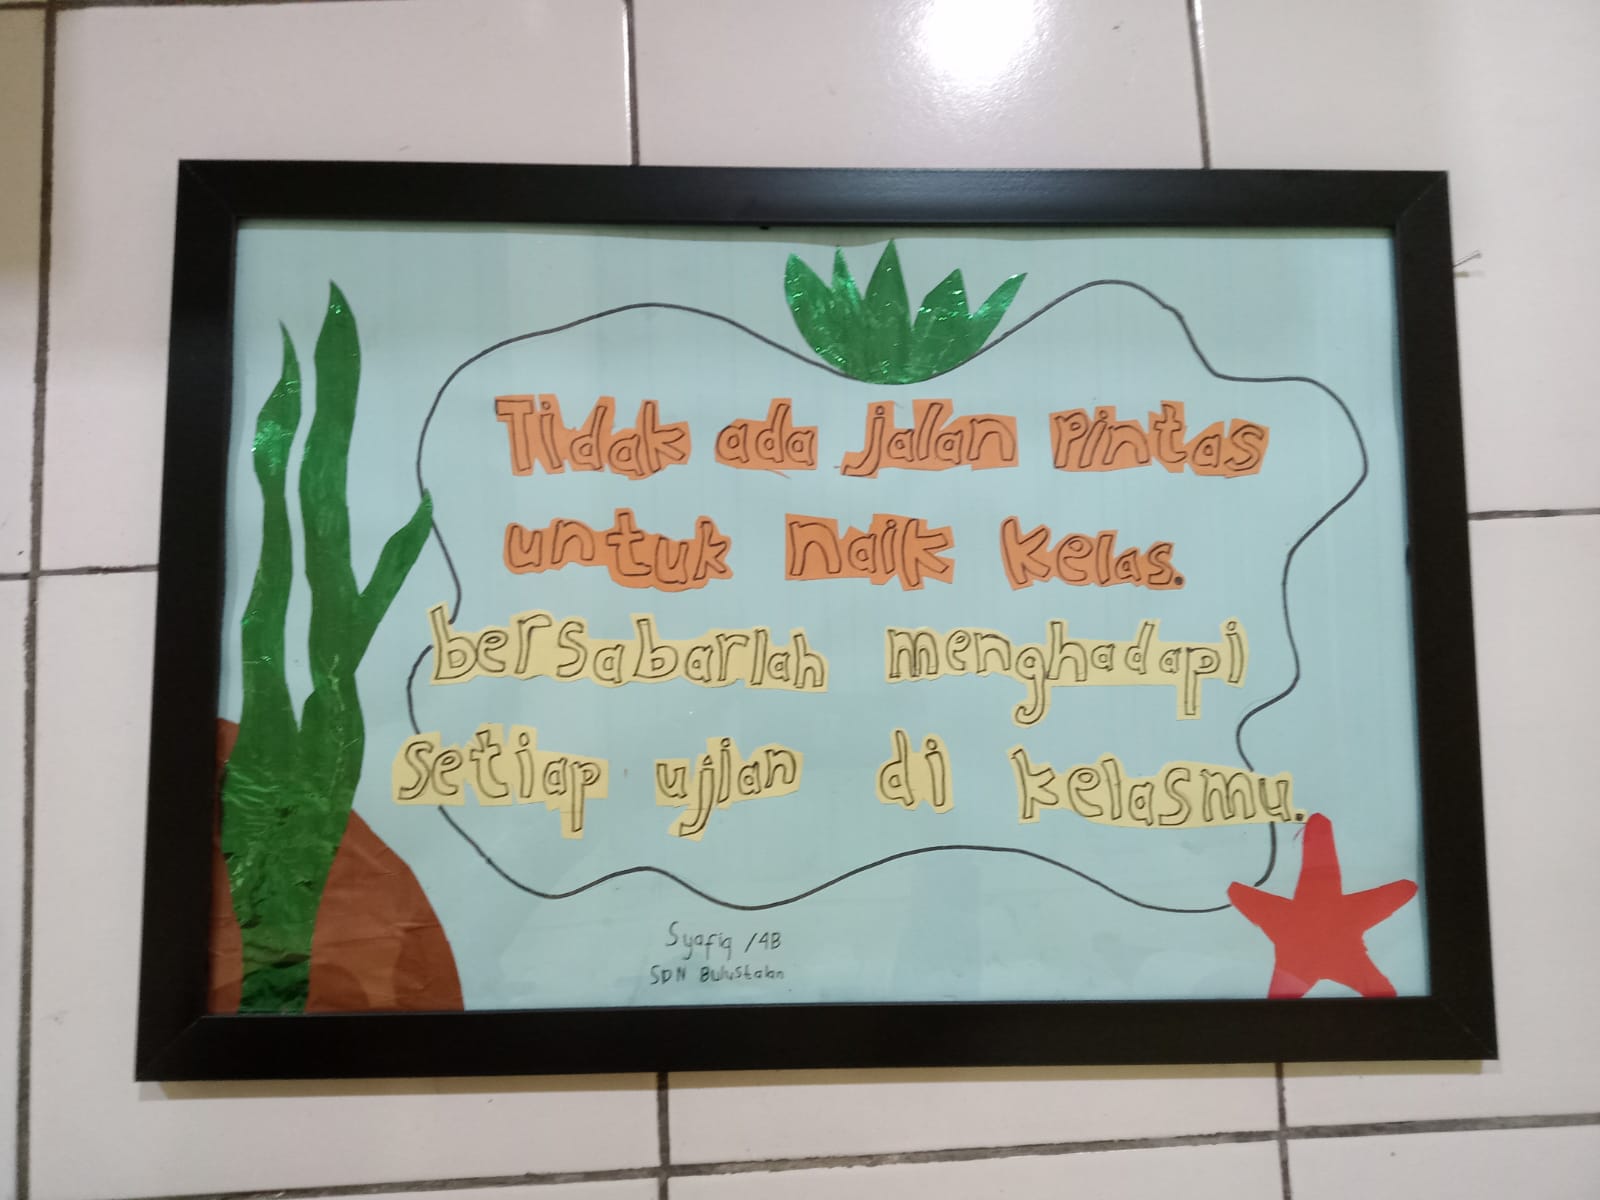 Tidak ada jalan Pintas
untuk naik kelas.
bersabarlah menghadapi
setiap ujian di kelasmu.
Syafiq /4B
SDN Bulustalan